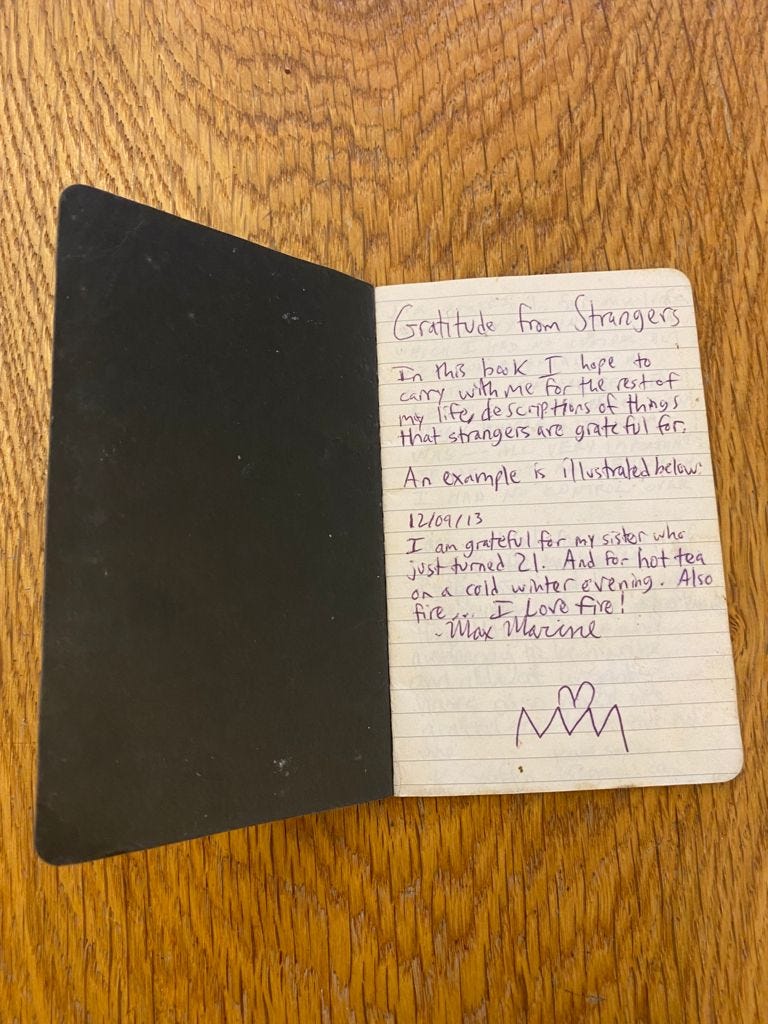 Gratitude from Strangers
In this book I hope to
carry with me for the rest of
my life, descriptions of things
that strangers are grateful for.
An example is illustrated below:
12/09/13
I am grateful for my sister who
just turned 21. And for hot tea
on a cold winter evening. Also
fire... I Love fire!
- Max Marine